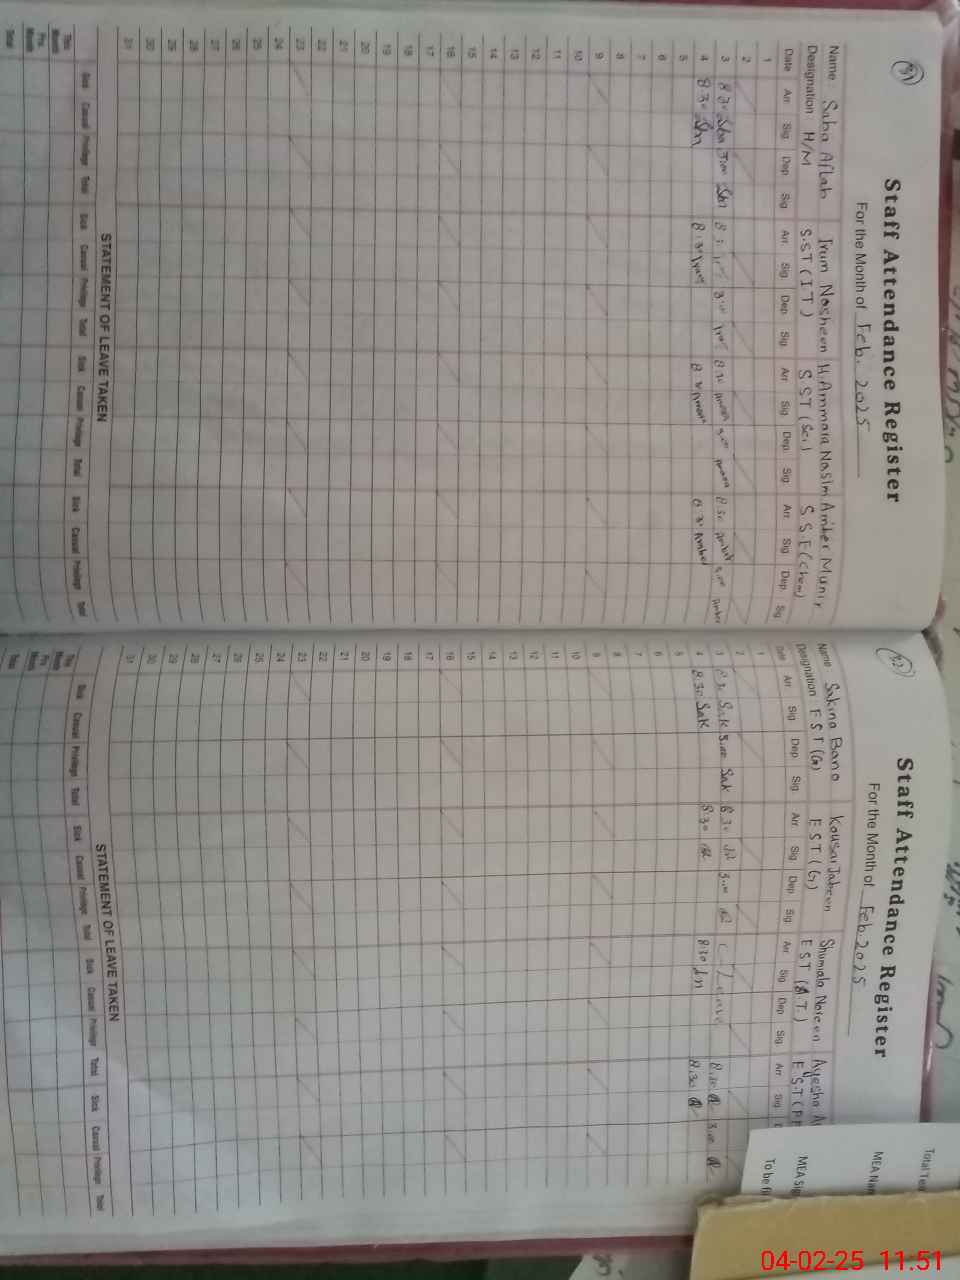 91
Staff Attendance Register
For the Month of Feb. 2025
Name: Saba Aftab Irum Nosheen H. Ammara Nasim Amber Munir
Designation H/M S.ST (I.T) S ST (Sci) S.S.E (Chem)
Date Arr Sig Dep Sig Arr Sig Dep Sig Arr Sig Dep Sig Arr Sig Dep Sig
1
2
3 8 30 3:00 8.30 Amber 3:00 Amber
4 8 30 8:30 Irum 8.30 Amber
5
6
7
8
9
10
11
12
13
14
15
16
17
18
19
20
21
22
23
24
25
26
27
28
29
30
31
STATEMENT OF LEAVE TAKEN
Sick Casual Privilege Total Sick Casual Privilege Total Sick Casual Privilege Total Sick Casual Privilege Total
This Month
Pre. Month
Total
92
Staff Attendance Register
For the Month of Feb. 2025
Name Sakina Bano Kousar Jabeen Shumaila Noreen Ayesha
Designation EST (G) EST (G) EST (A.T.) E.S.T (
Date Arr Sig Dep Sig Arr Sig Dep Sig Arr Sig Dep Sig Arr Sig
1
2
3 8.30 Sak 3:00 Sak 8.30 3:00 C/Leave 8.30 3:00
4 8.30 Sak 8.30 8.30 8.30
5
6
7
8
9
10
11
12
13
14
15
16
17
18
19
20
21
22
23
24
25
26
27
28
29
30
31
STATEMENT OF LEAVE TAKEN
Sick Casual Privilege Total Sick Casual Privilege Total Sick Casual Privilege Total Sick Casual Privilege Total
This Month
Pre. Month
Total
MEA Nam
MEA Sig
To be fi
04-02-25 11.51